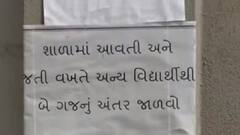 શાળામાં આવતી અને
જતી વખતે અન્ય વિદ્યાર્થીથી
બે ગજનું અંતર જાળવો